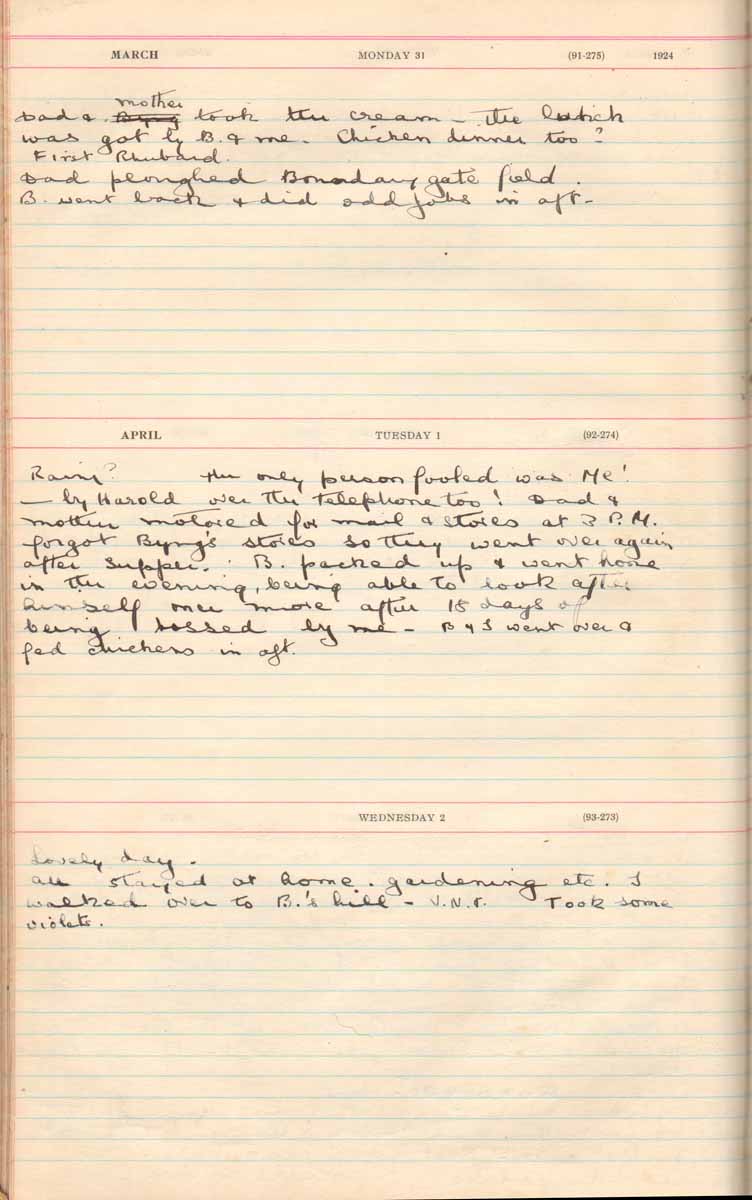 MARCH MONDAY 31 (91-275) 1924
mother
Dad & Byng took the cream - the
was got by B. & me. Chicken dinner too!
First Rhubard.
Dad ploughed Boundary gate field.
B. went back & did odd jobs in aft-
APRIL TUESDAY 1 (92-274)
Rainy? the only person fooled was Me!
- by Harold over the telephone too! Dad &
mother motored for mail & stores at 3 P.M.
forgot Byng's stores so they went over again
after supper. B. packed up & went home
in the evening, being able to look after
himself once more after 18 days of
being bossed by me - B & I went over &
fed chickens in aft.
WEDNESDAY 2 (93-273)
Lovely day.
all stayed at home. gardening etc. I
walked over to B.'s hill - Took some
violets.